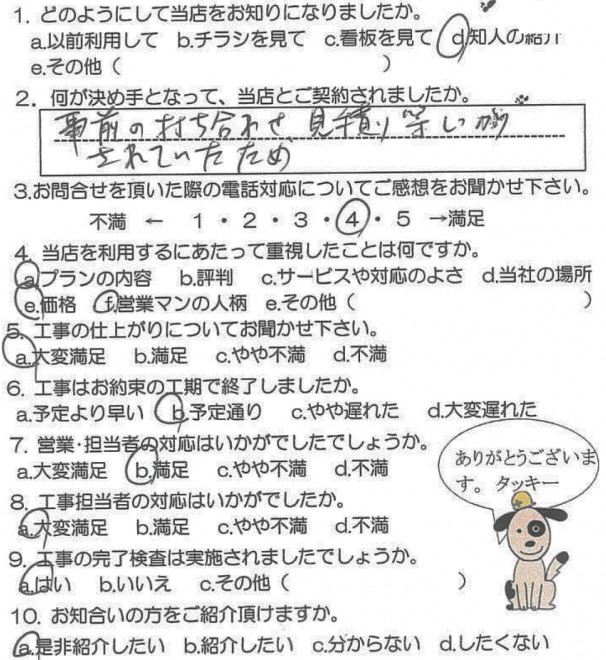 1. どのようにして当店をお知りになりましたか。
a.以前利用して b.チラシを見て c.看板を見て d.知人の紹介
e.その他（ ）
2. 何が決め手となって、当店とご契約されましたか。
事前の打ち合わせ、見積り等しっかり
されていたため
3.お問合せを頂いた際の電話対応についてご感想をお聞かせ下さい。
不満 ← 1・2・3・4・5 →満足
4. 当店を利用するにあたって重視したことは何ですか。
a.プランの内容 b.評判 c.サービスや対応のよさ d.当社の場所
e.価格 f.営業マンの人柄 e.その他（ ）
5. 工事の仕上がりについてお聞かせ下さい。
a.大変満足 b.満足 c.やや不満 d.不満
6. 工事はお約束の工期で終了しましたか。
a.予定より早い b.予定通り c.やや遅れた d.大変遅れた
7. 営業・担当者の対応はいかがでしたでしょうか。
a.大変満足 b.満足 c.やや不満 d.不満
ありがとうございま
す。 タッキー
8. 工事担当者の対応はいかがでしたか。
a.大変満足 b.満足 c.やや不満 d.不満
9. 工事の完了検査は実施されましたでしょうか。
a.はい b.いいえ c.その他（ ）
10. お知合いの方をご紹介頂けますか。
a.是非紹介したい b.紹介したい c.分からない d.したくない